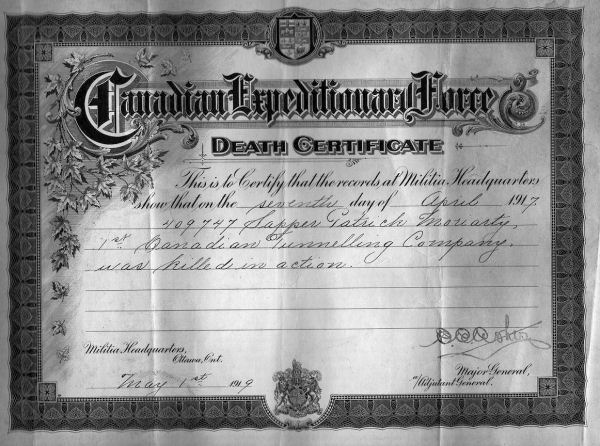 Canadian Expeditionary Force
DEATH CERTIFICATE
This is to Certify that the records at Militia Headquarters
show that on the seventh day of April 1917.
409747 Sapper Patrick Moriarty,
1st Canadian Tunnelling Company.
was killed in action.
Militia Headquarters,
Ottawa, Ont.
May 1st 1919
Major General,
Adjutant General.